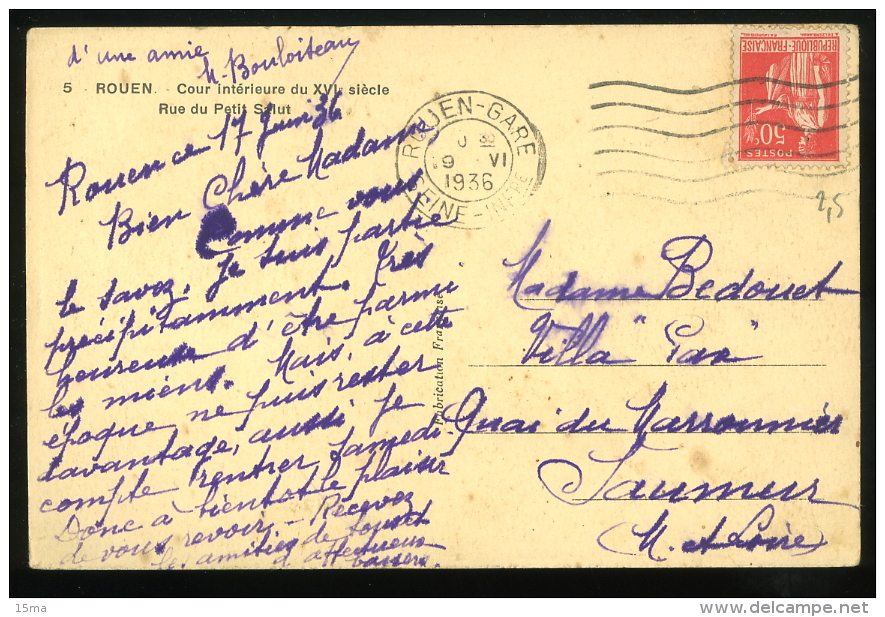 d'une amie
M. Bouloiteau
5 - ROUEN. - Cour intérieure du XVIe siècle
Rue du Petit Salut
Rouen ce 17 Juin 36
Bien Chère Madame
Comme vous
le savez, je suis partie
précipitamment. Très
heureuse d'être parmi
les miens. Mais, à cette
époque, ne puis rester
davantage, aussi je
compte rentrer Samedi.
Donc à bientôt le plaisir
de vous revoir. - Recevez
les amitiés de
affectueux
baisers
ROUEN-GARE
9 VI
1936
SEINE-INFRE
REPUBLIQUE-FRANÇAISE
50c
POSTES
2,5
Fabrication Française
Madame Bedouet
Villa "Pax"
Quai du Marronnier
Saumur
M. et Loire
15ma
delcampe.net